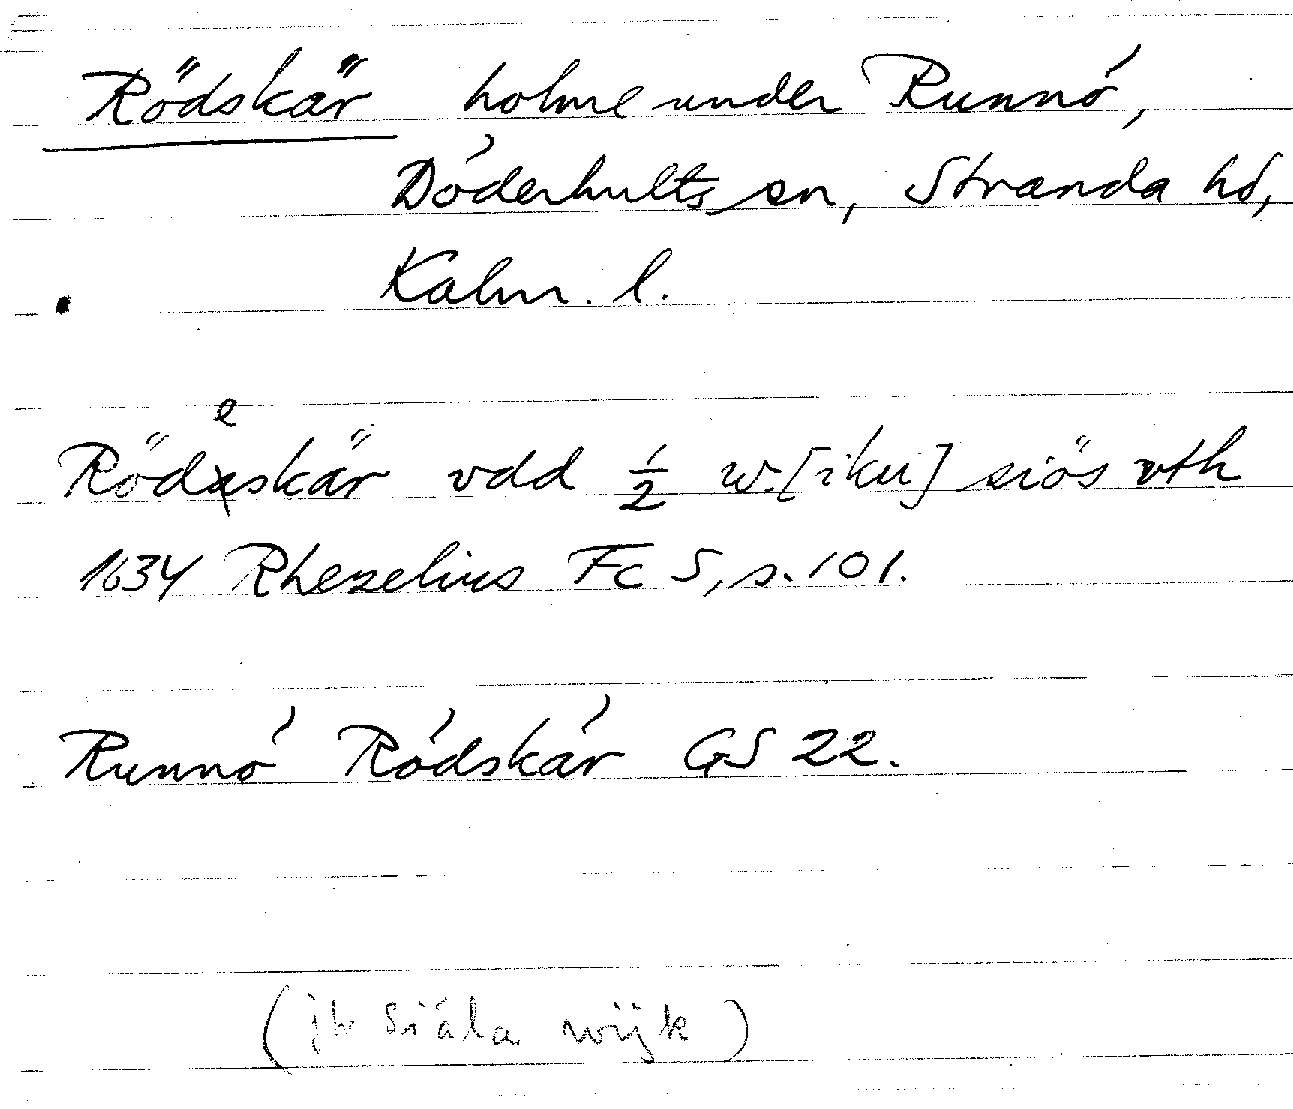 Rödskär holme under Runnö,
Döderhults sn, Stranda hd,
Kalm. l.
Rödeskär vdd ½ w.[iku] siös vth
1634 Rhezelius Fc 5, s. 101.
Runnö Rödskär GS 22.
(jfr Siäla wijk)